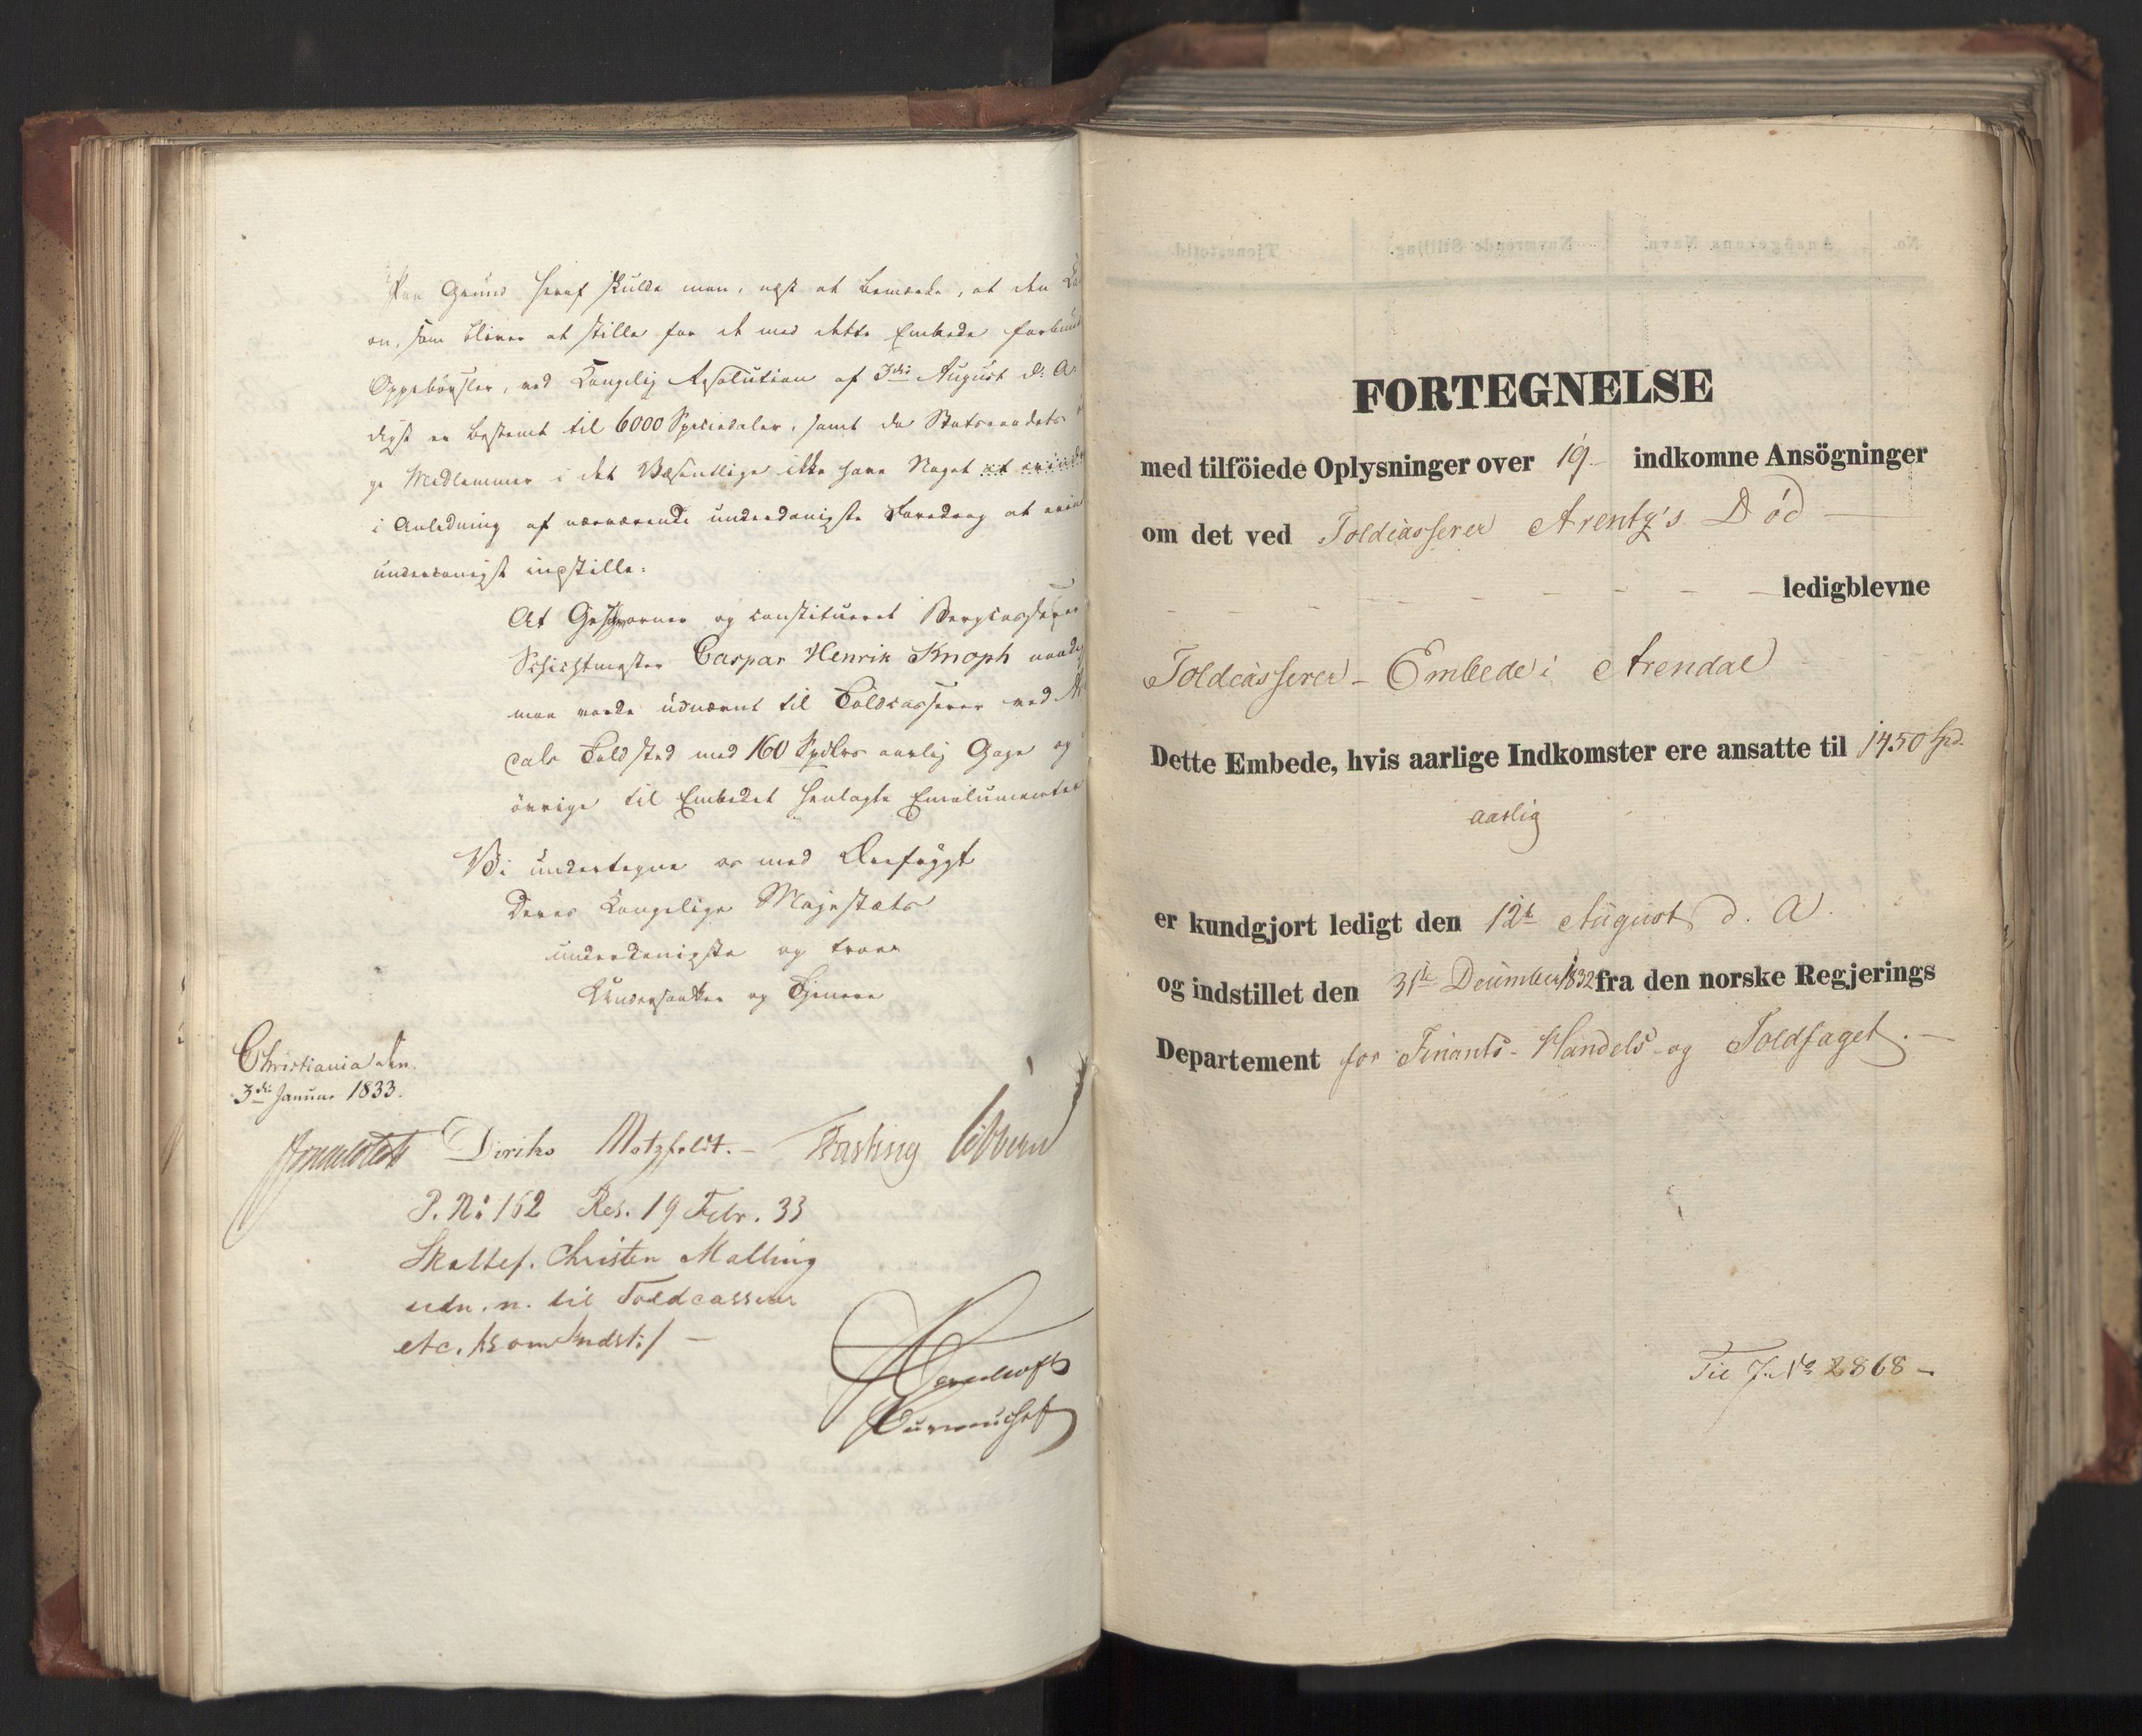 Paa Grund heraf skulde man, næst at bemærke, at den
on, som bliver at stille for de med dette Embede
Oppebørsler, ved Kongelig Resolution af 3die August d: A:
digst er bestemt til 6000 Speciedaler, samt da Statsraadets
ge Medlemmer i det Væsentlige ikke have Noget at
i Anledning af nærværende underdanigste Foredrag at
underdanigst indstille:
At Geschworner og constitueret Bergcasserer
Schichtmester Caspar Henrik Knoph
maa vorde udnævnt til Toldcasserer ved
dals Toldsted med 160 Spdlrs aarlig Gage og
øvrige til Embedet henlagte Emolumenter
Vi undertegne os med Ærefrygt
Deres Kongelige Majestæts
underdanigste og troe
Undersaatter og Tjenere
Christiania den
3die Januar 1833.
Diriks Motzfeldt. Fasting Vibbern
P. No: 162 Res. 19 Febr. 33
Skattef. Christen Malling
udn. n. til Toldcasserer
etc. /:som Indst:/ –
FORTEGNELSE
med tilföiede Oplysninger over 19 indkomne Ansögninger
om det ved Toldcasserer Arentz's Død
ledigblevne
Toldcasserer-Embede i Arendal
Dette Embede, hvis aarlige Indkomster ere ansatte til 1450 Spd.
aarlig
er kundgjort ledigt den 12te August d. A.
og indstillet den 31te December 1832 fra den norske Regjerings
Departement for Finants- Handels- og Toldfaget.
Til J. No 2868 –
No.
Ansögerens Navn.
Nuværende Stilling.
Tjenestetid